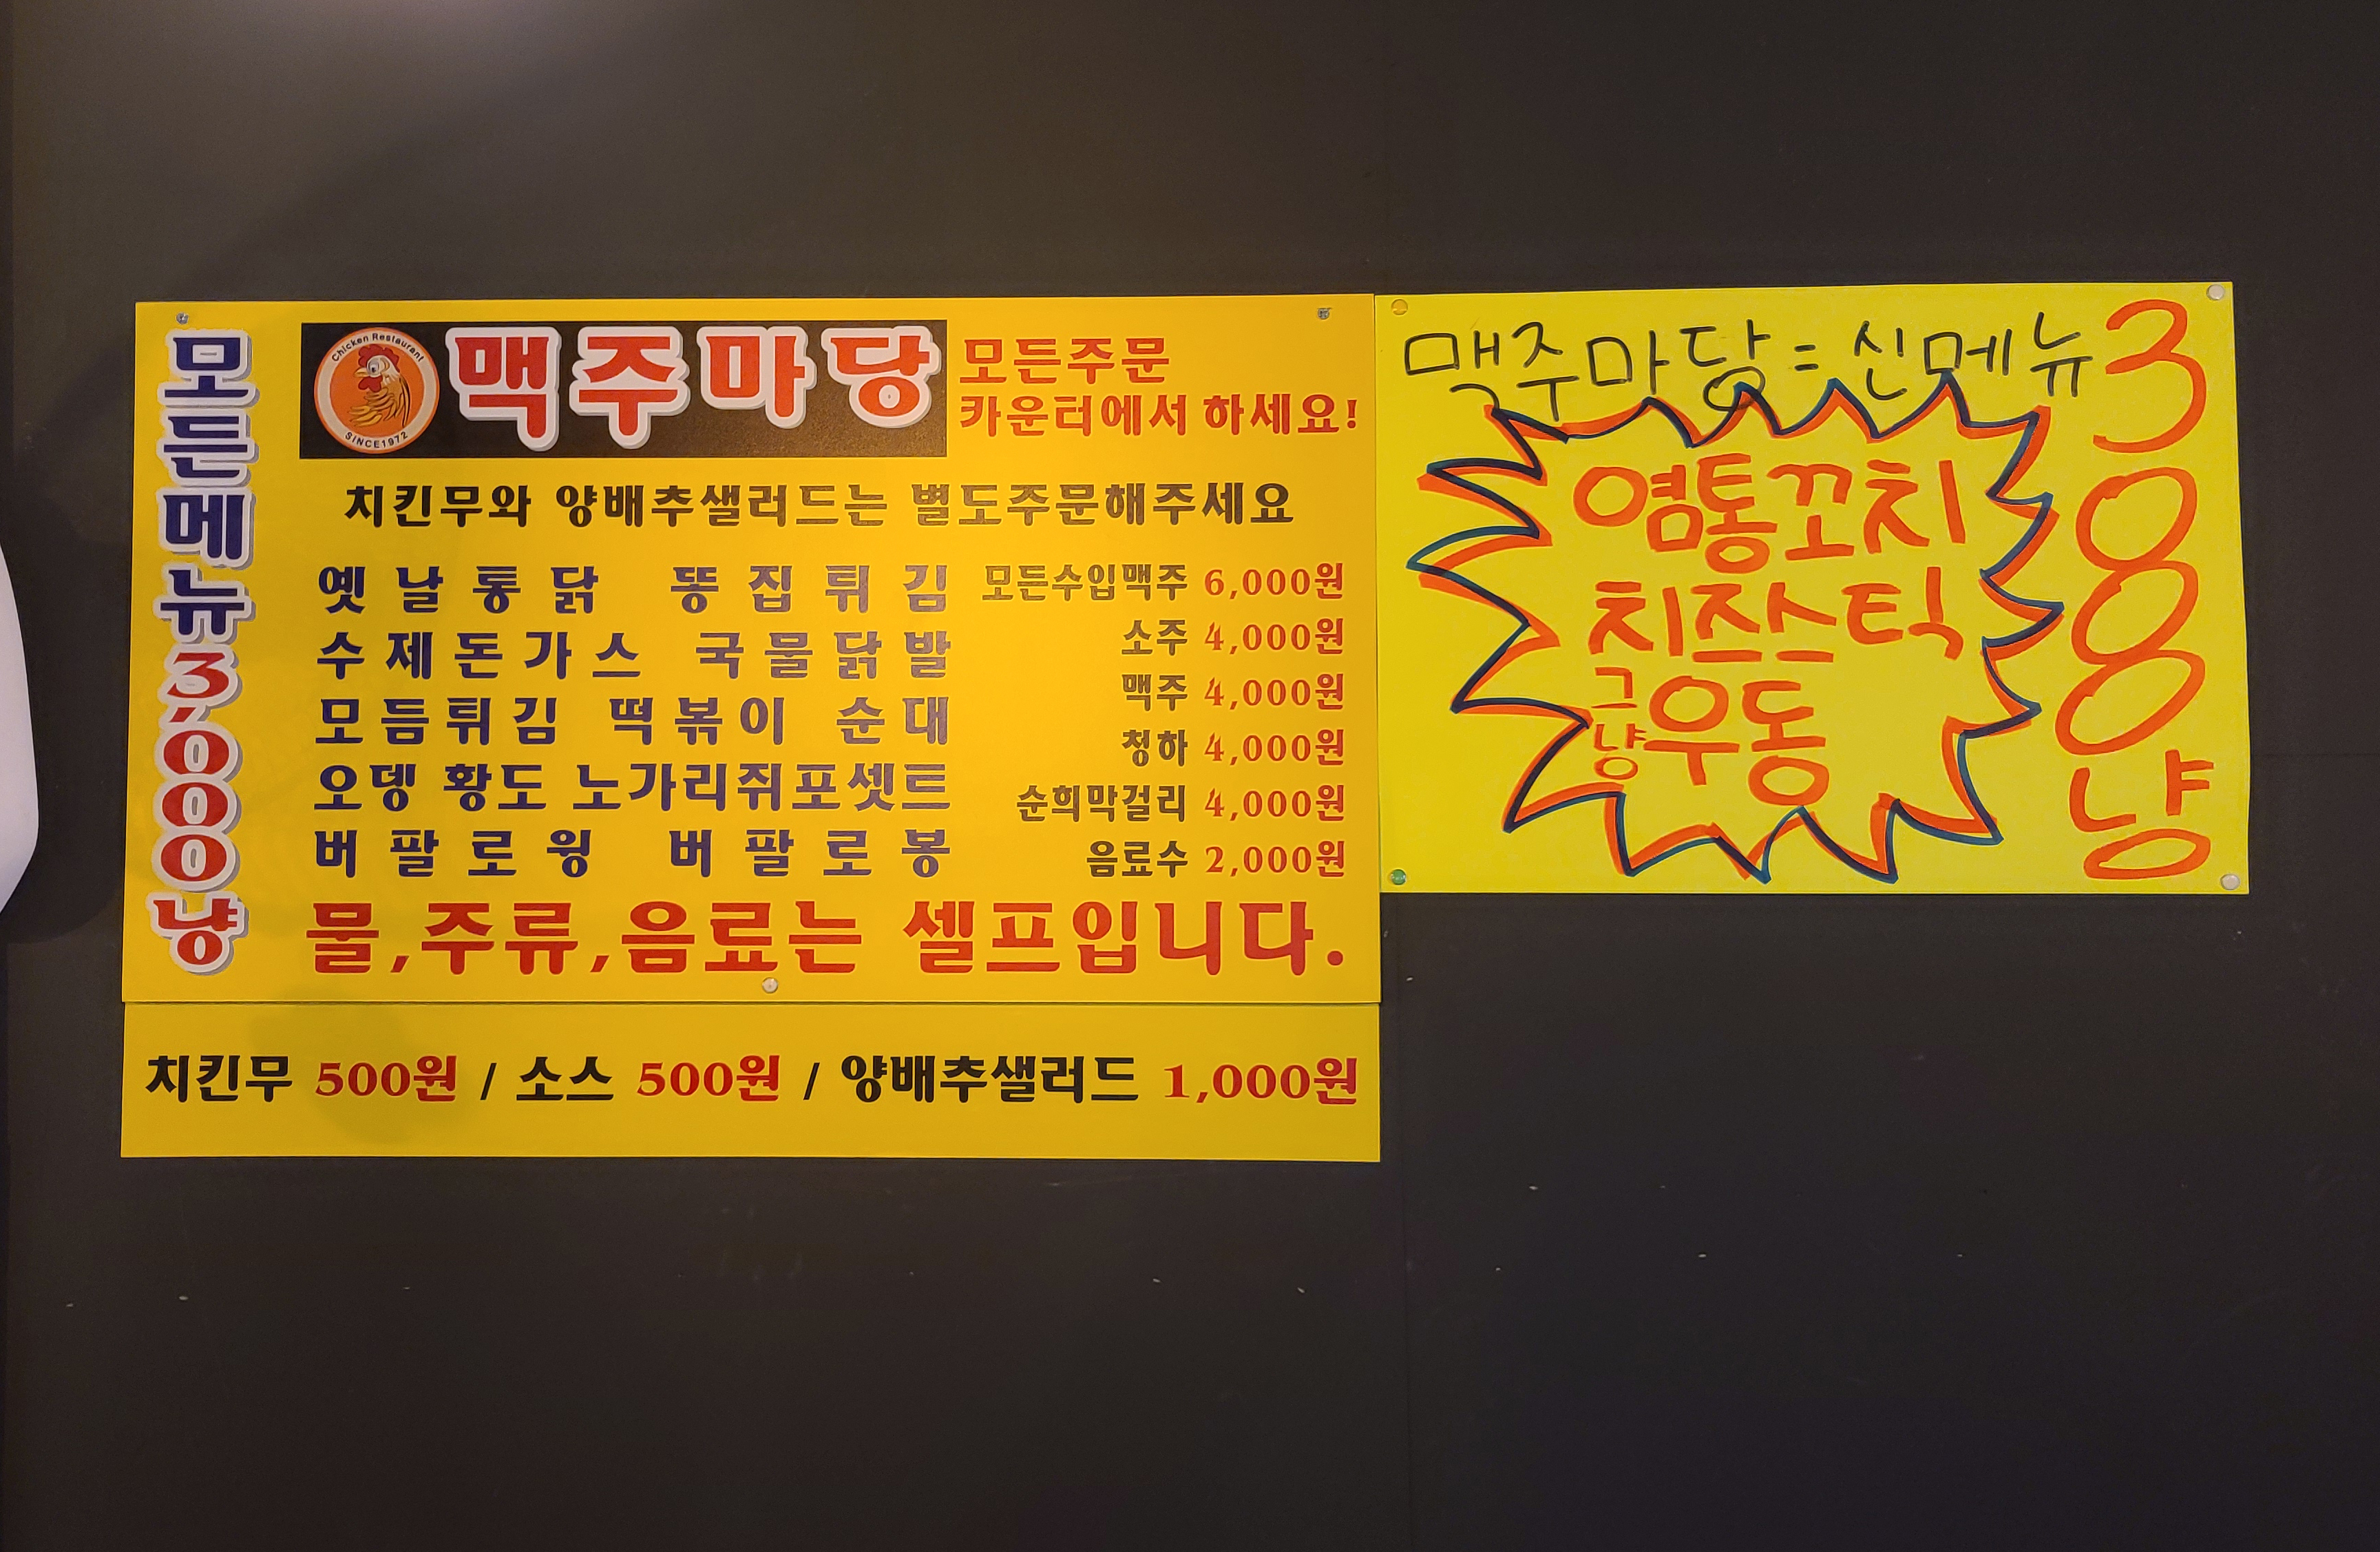 모든메뉴3,000냥
Chicken Restaurant
SINCE1972
맥주마당
모든주문
카운터에서 하세요!
치킨무와 양배추샐러드는 별도주문해주세요
옛날통닭 똥집튀김
수제돈가스 국물닭발
모듬튀김 떡볶이 순대
오뎅 황도 노가리쥐포셋트
버팔로윙 버팔로봉
모든수입맥주 6,000원
소주 4,000원
맥주 4,000원
청하 4,000원
순희막걸리 4,000원
음료수 2,000원
물,주류,음료는 셀프입니다.
치킨무 500원 / 소스 500원 / 양배추샐러드 1,000원
맥주마당=신메뉴
염통꼬치
치즈스틱
그냥우동
3000냥